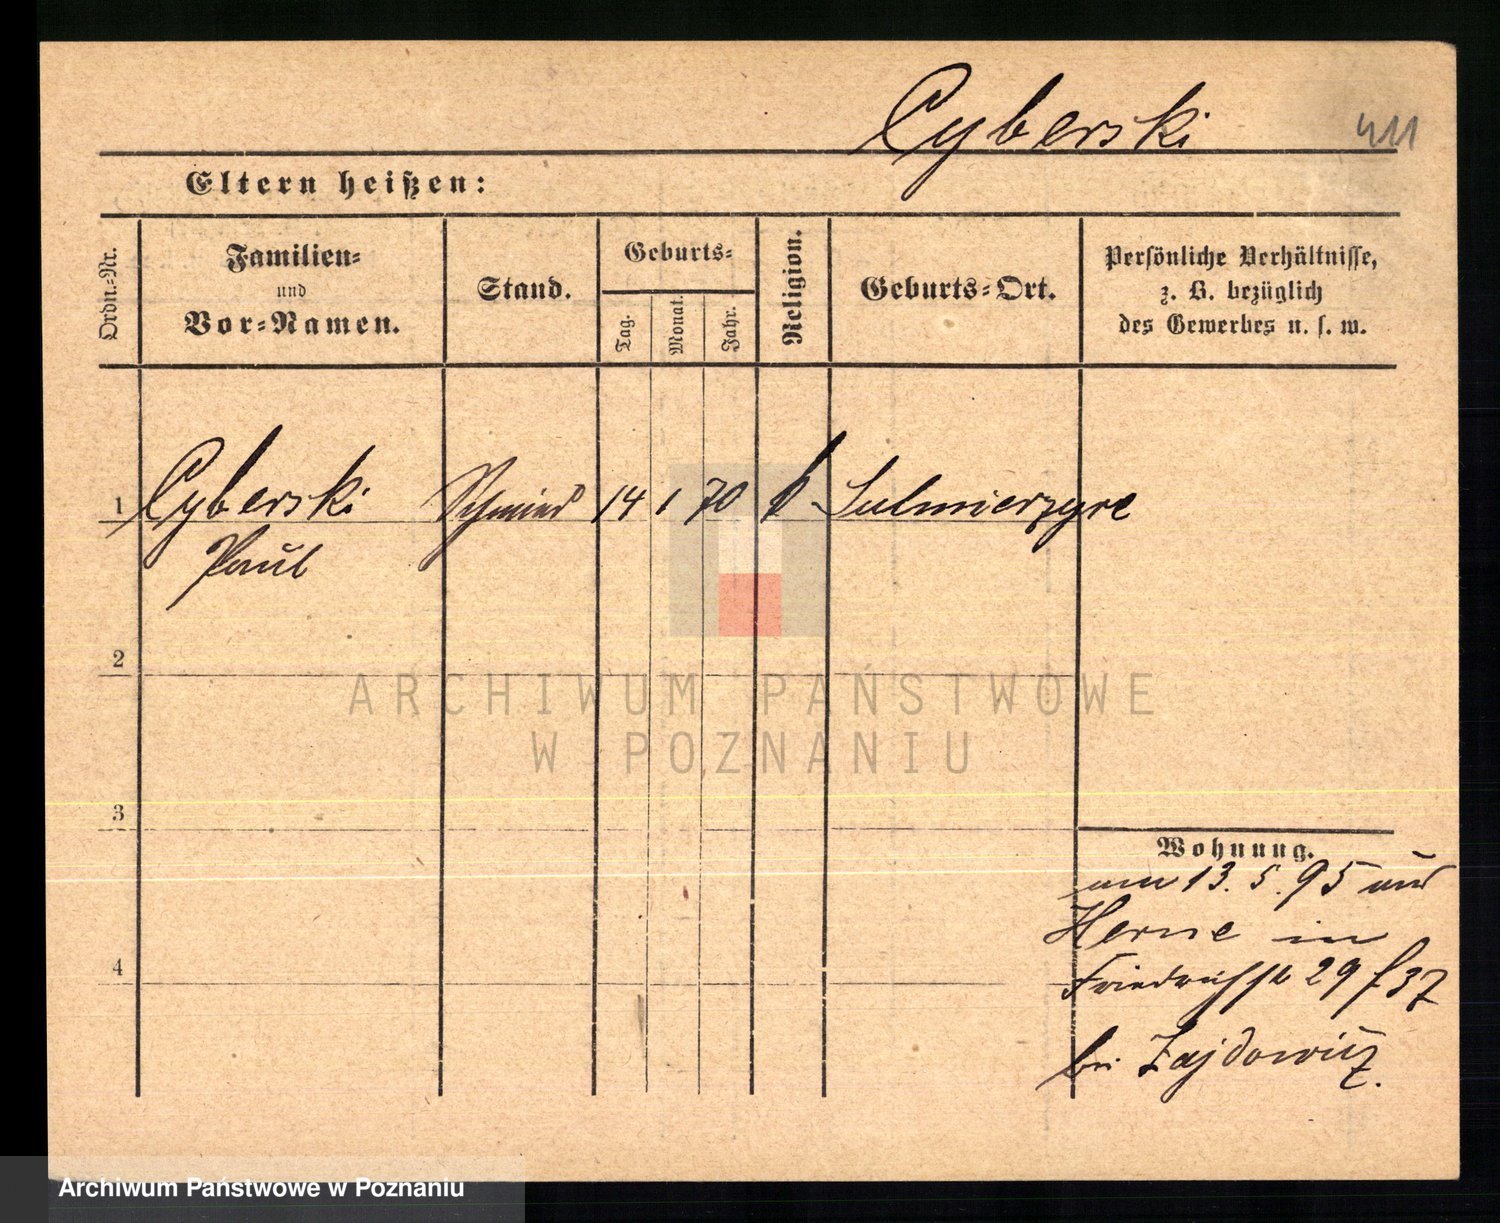 Cyberski
411
Eltern heißen:
Ordn.-Nr.
Familien-
und
Vor-Namen.
Stand.
Geburts-
Tag.
Monat.
Jahr.
Religion.
Geburts-Ort.
Persönliche Verhältnisse,
z. B. bezüglich
des Gewerbes u. s. w.
1 Cyberski Schmied 14 1 70 k Sulmierzyce
Paul
2
ARCHIWUM PAŃSTWOWE
W POZNANIU
3
Wohnung.
am 13. 5. 95 aus
Herne in
4
Friedrichstr 29 f 37
bei Zajdowicz.
Archiwum Państwowe w Poznaniu